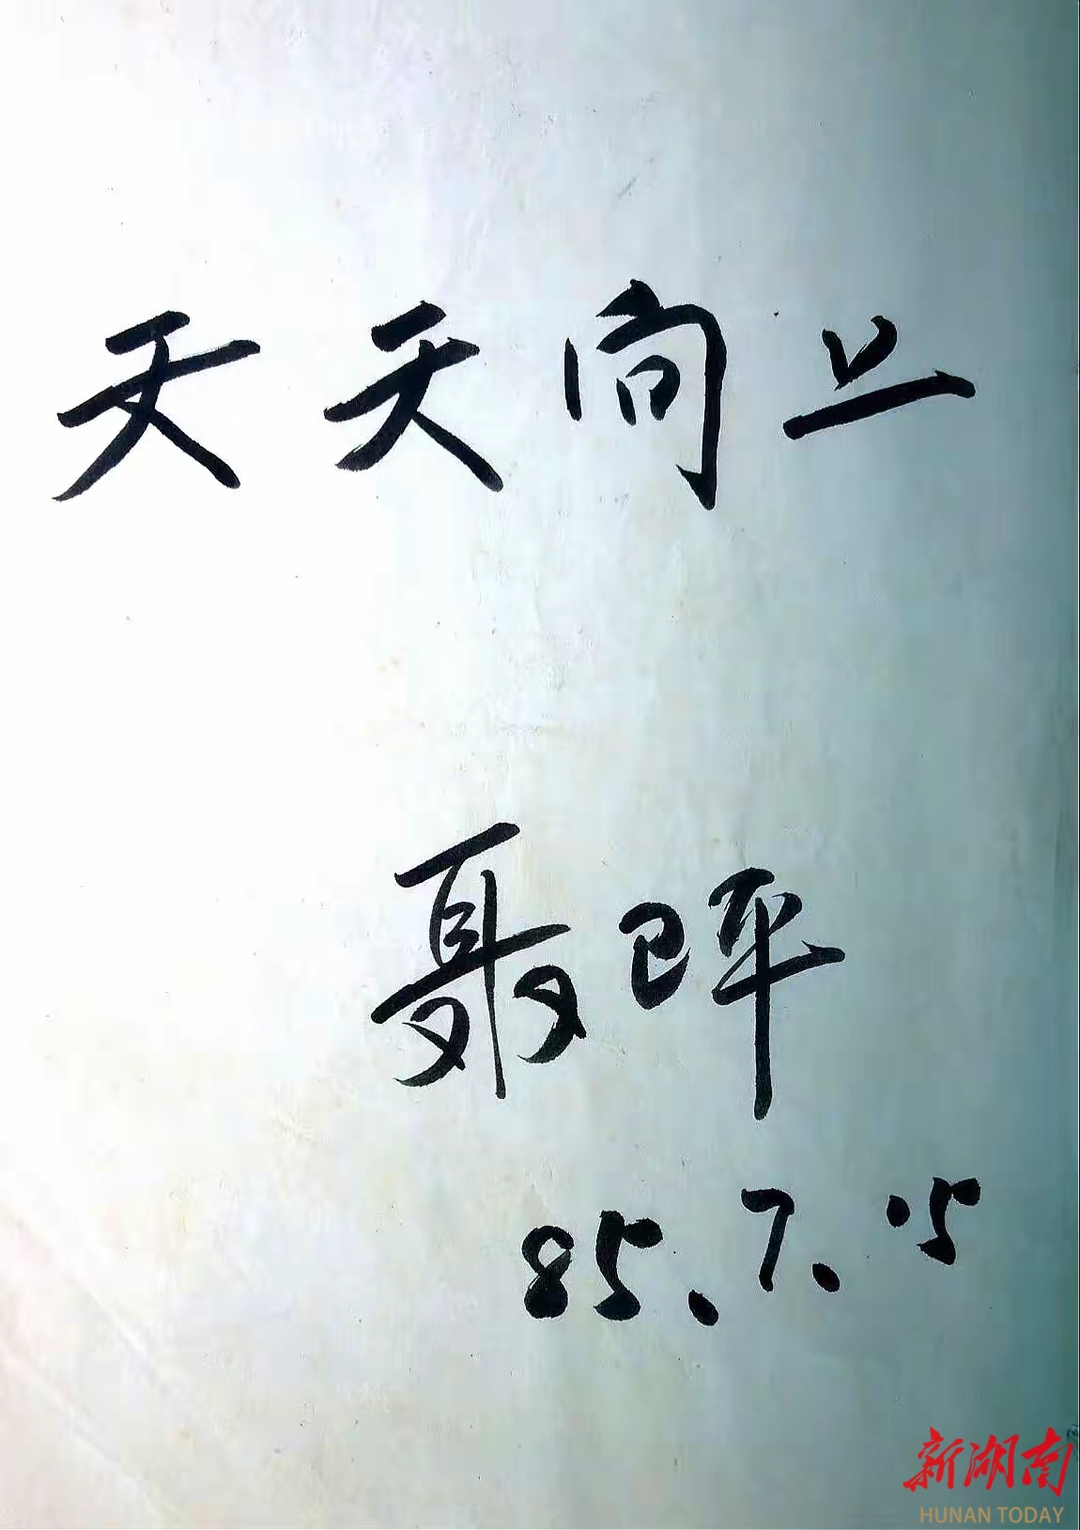 天天向上
聂卫平
85.7.15
新湖南
HUNAN TODAY